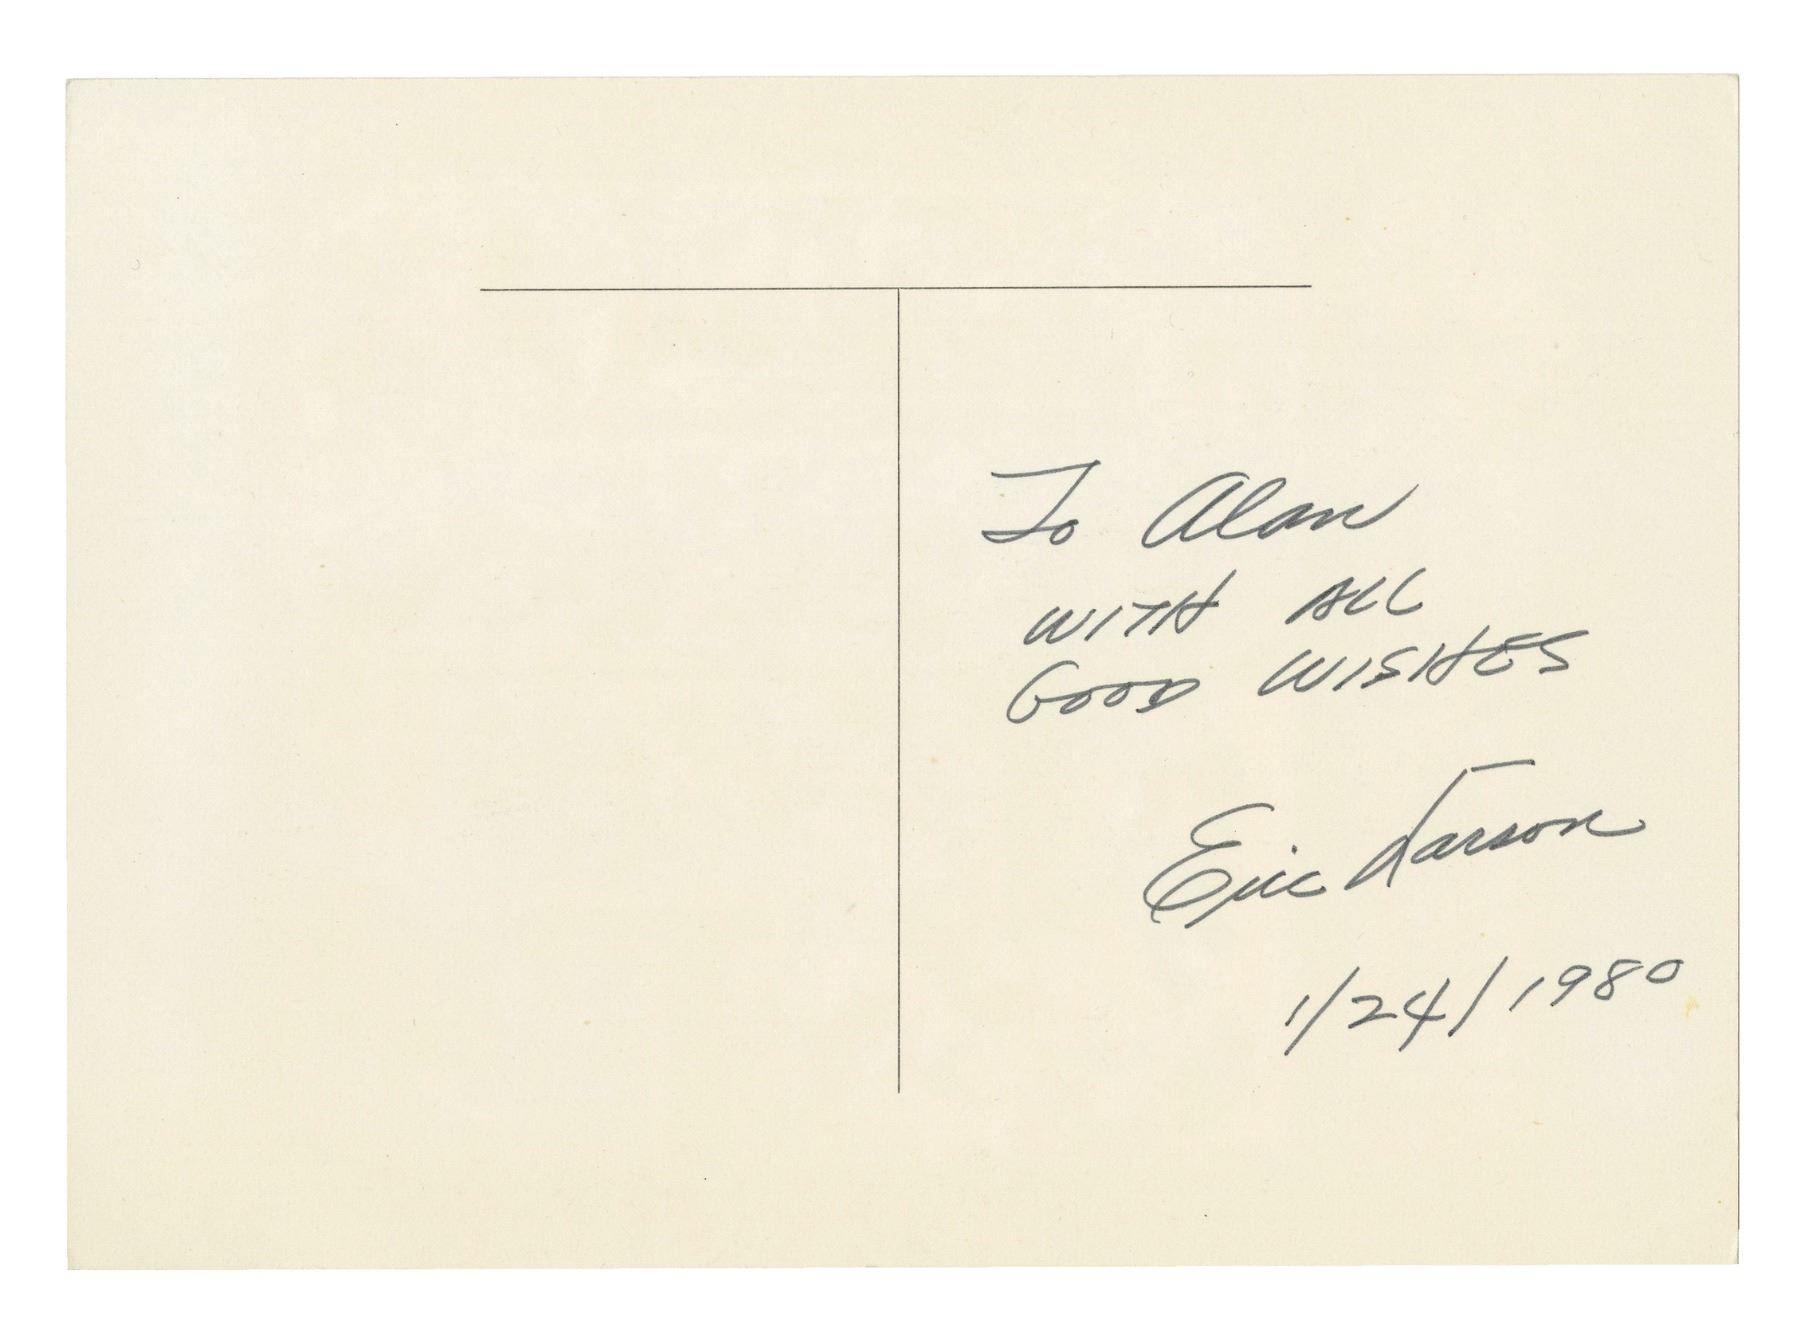 To Alan
WITH ALL
GOOD WISHES
Eric Larson
1/24/1980